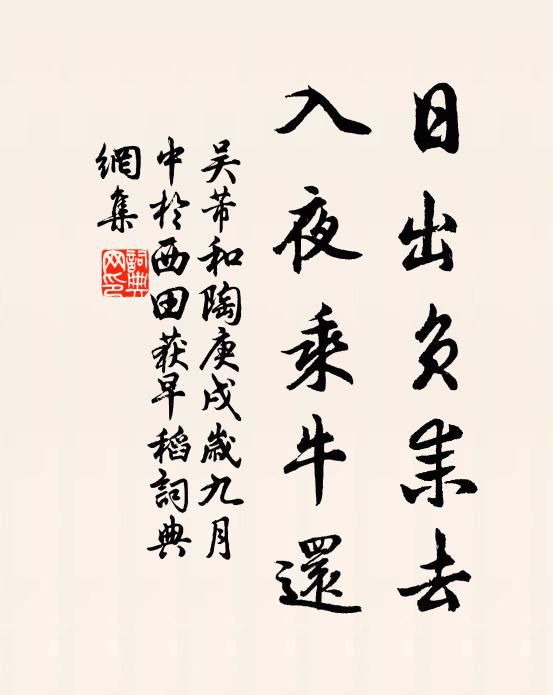 日出负耒去
入夜乘牛還
吴芾和陶庚戌歲九月
中於西田获早稻詞典
網集
詞典
网印